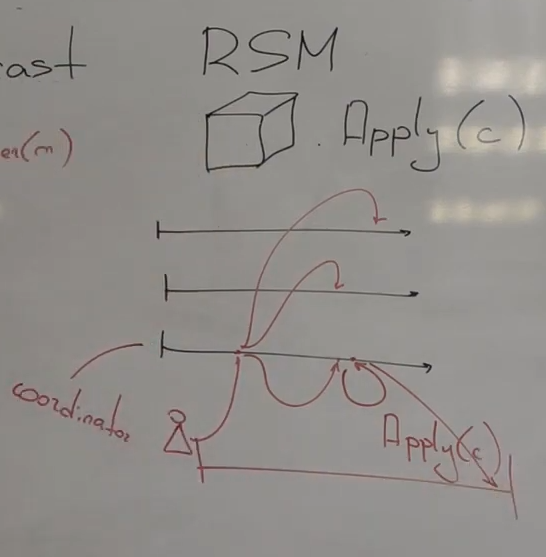 ast RSM
er(m) . Apply(c)
coordinator
Apply(c)